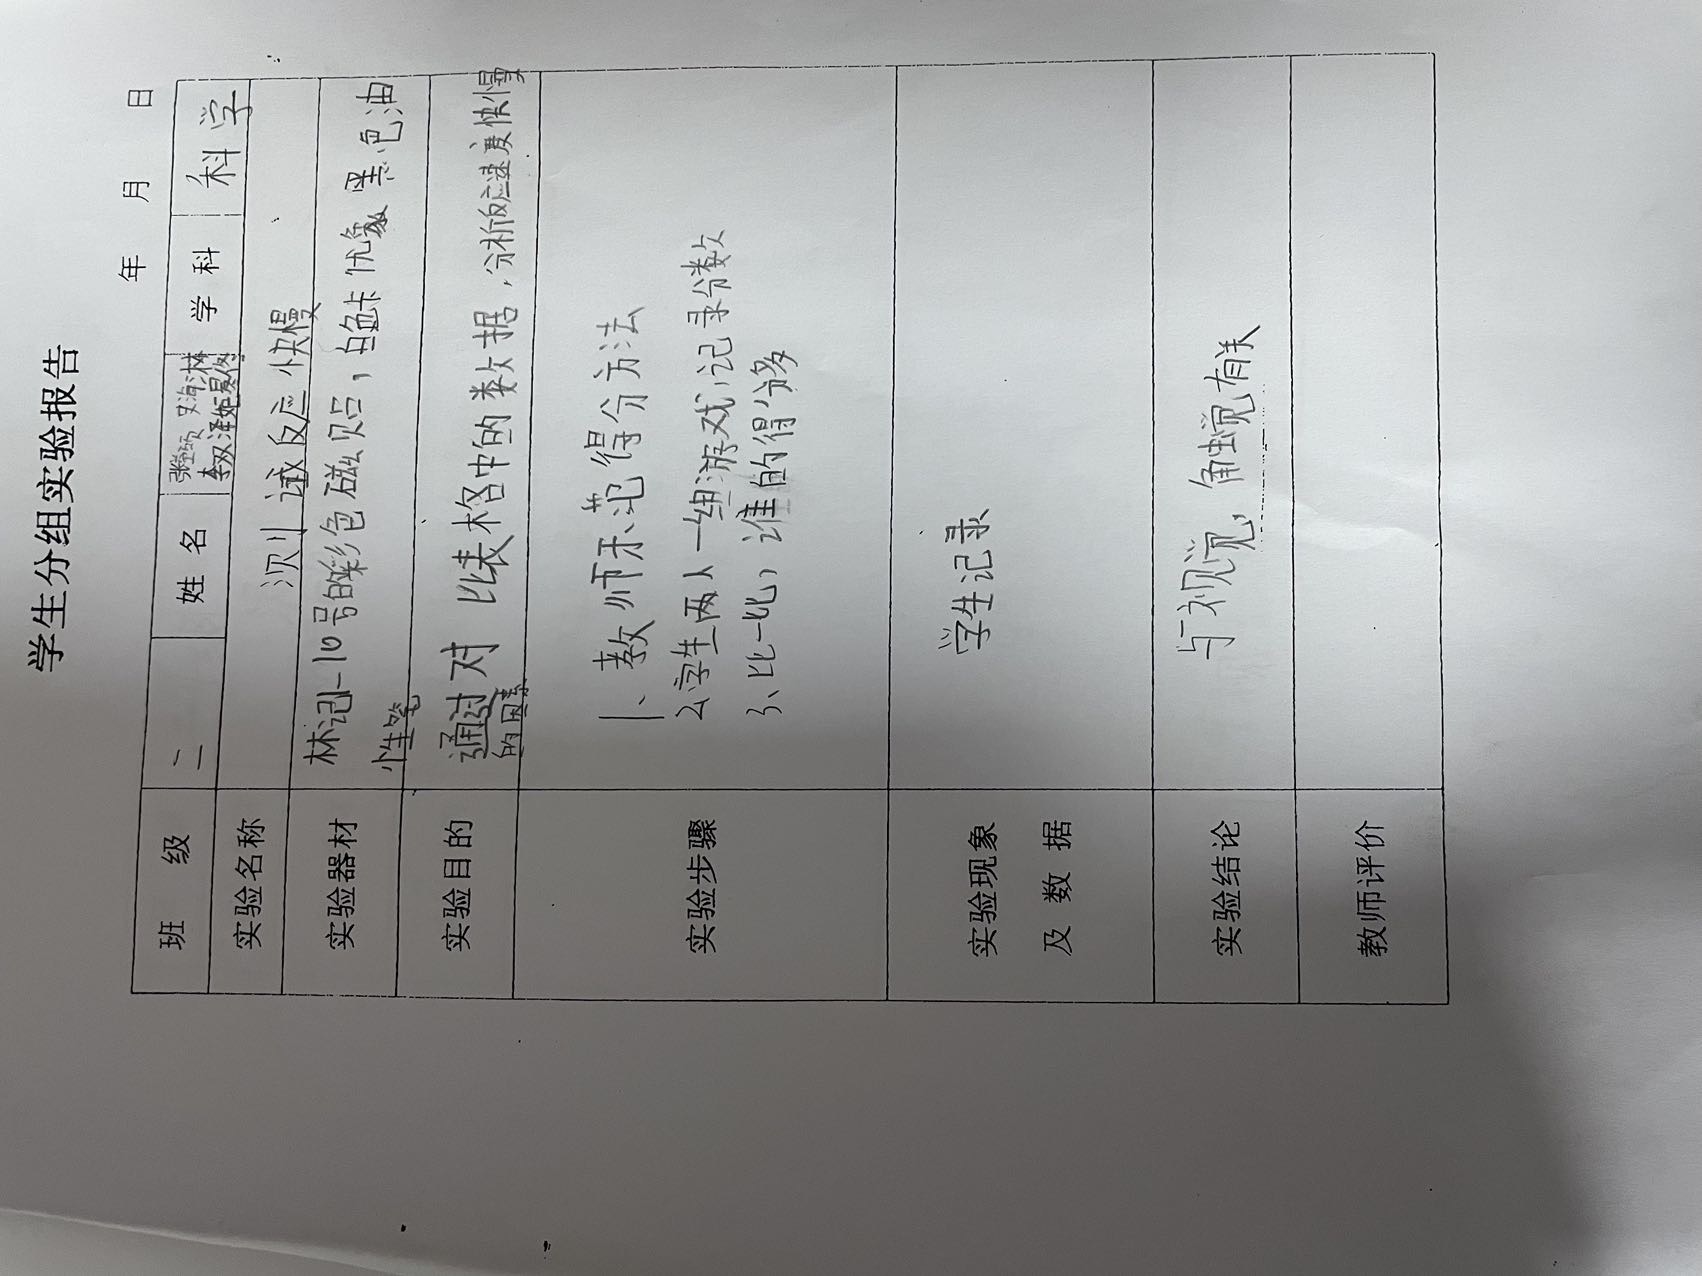 学生分组实验报告
年 月 日
班 级 二 姓 名 学 科 科学
实验名称 测试反应快慢
实验器材 标记1-10号的彩色磁贴，白色卡 黑色油
性笔
实验目的 通过对比表格中的数据，分析反应速度快慢
的因素
实验步骤
1、教师示范得分方法
2、学生两人一组游戏，记录分数
3、比一比，谁的得分多
实验现象
及 数 据
学生记录
实验结论 与视觉，触觉有关
教师评价